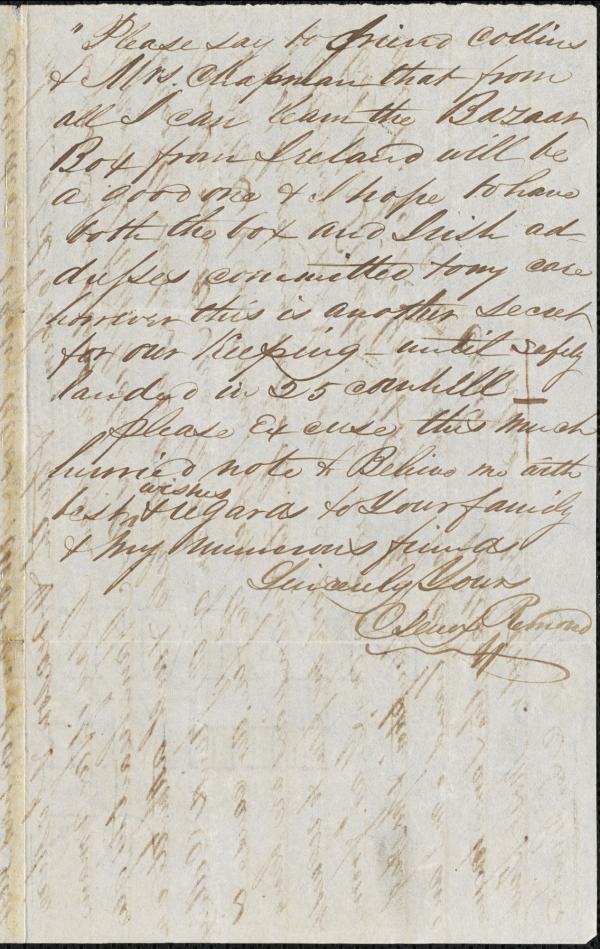 "Please say to friend Collins
& Mrs. Chapman that from
all I can learn the Bazaar
Box from Ireland will be
a good one & I hope to have
both the box and Irish ad-
dresses committed to my care
however this is another secret
for our Keeping - until safely
landed in 25 cornhill
please Excuse this much
hurried note & Believe me with
best wishes & regards to Your family
& my numerous friends
Sincerely Yours
C Lenox Remond